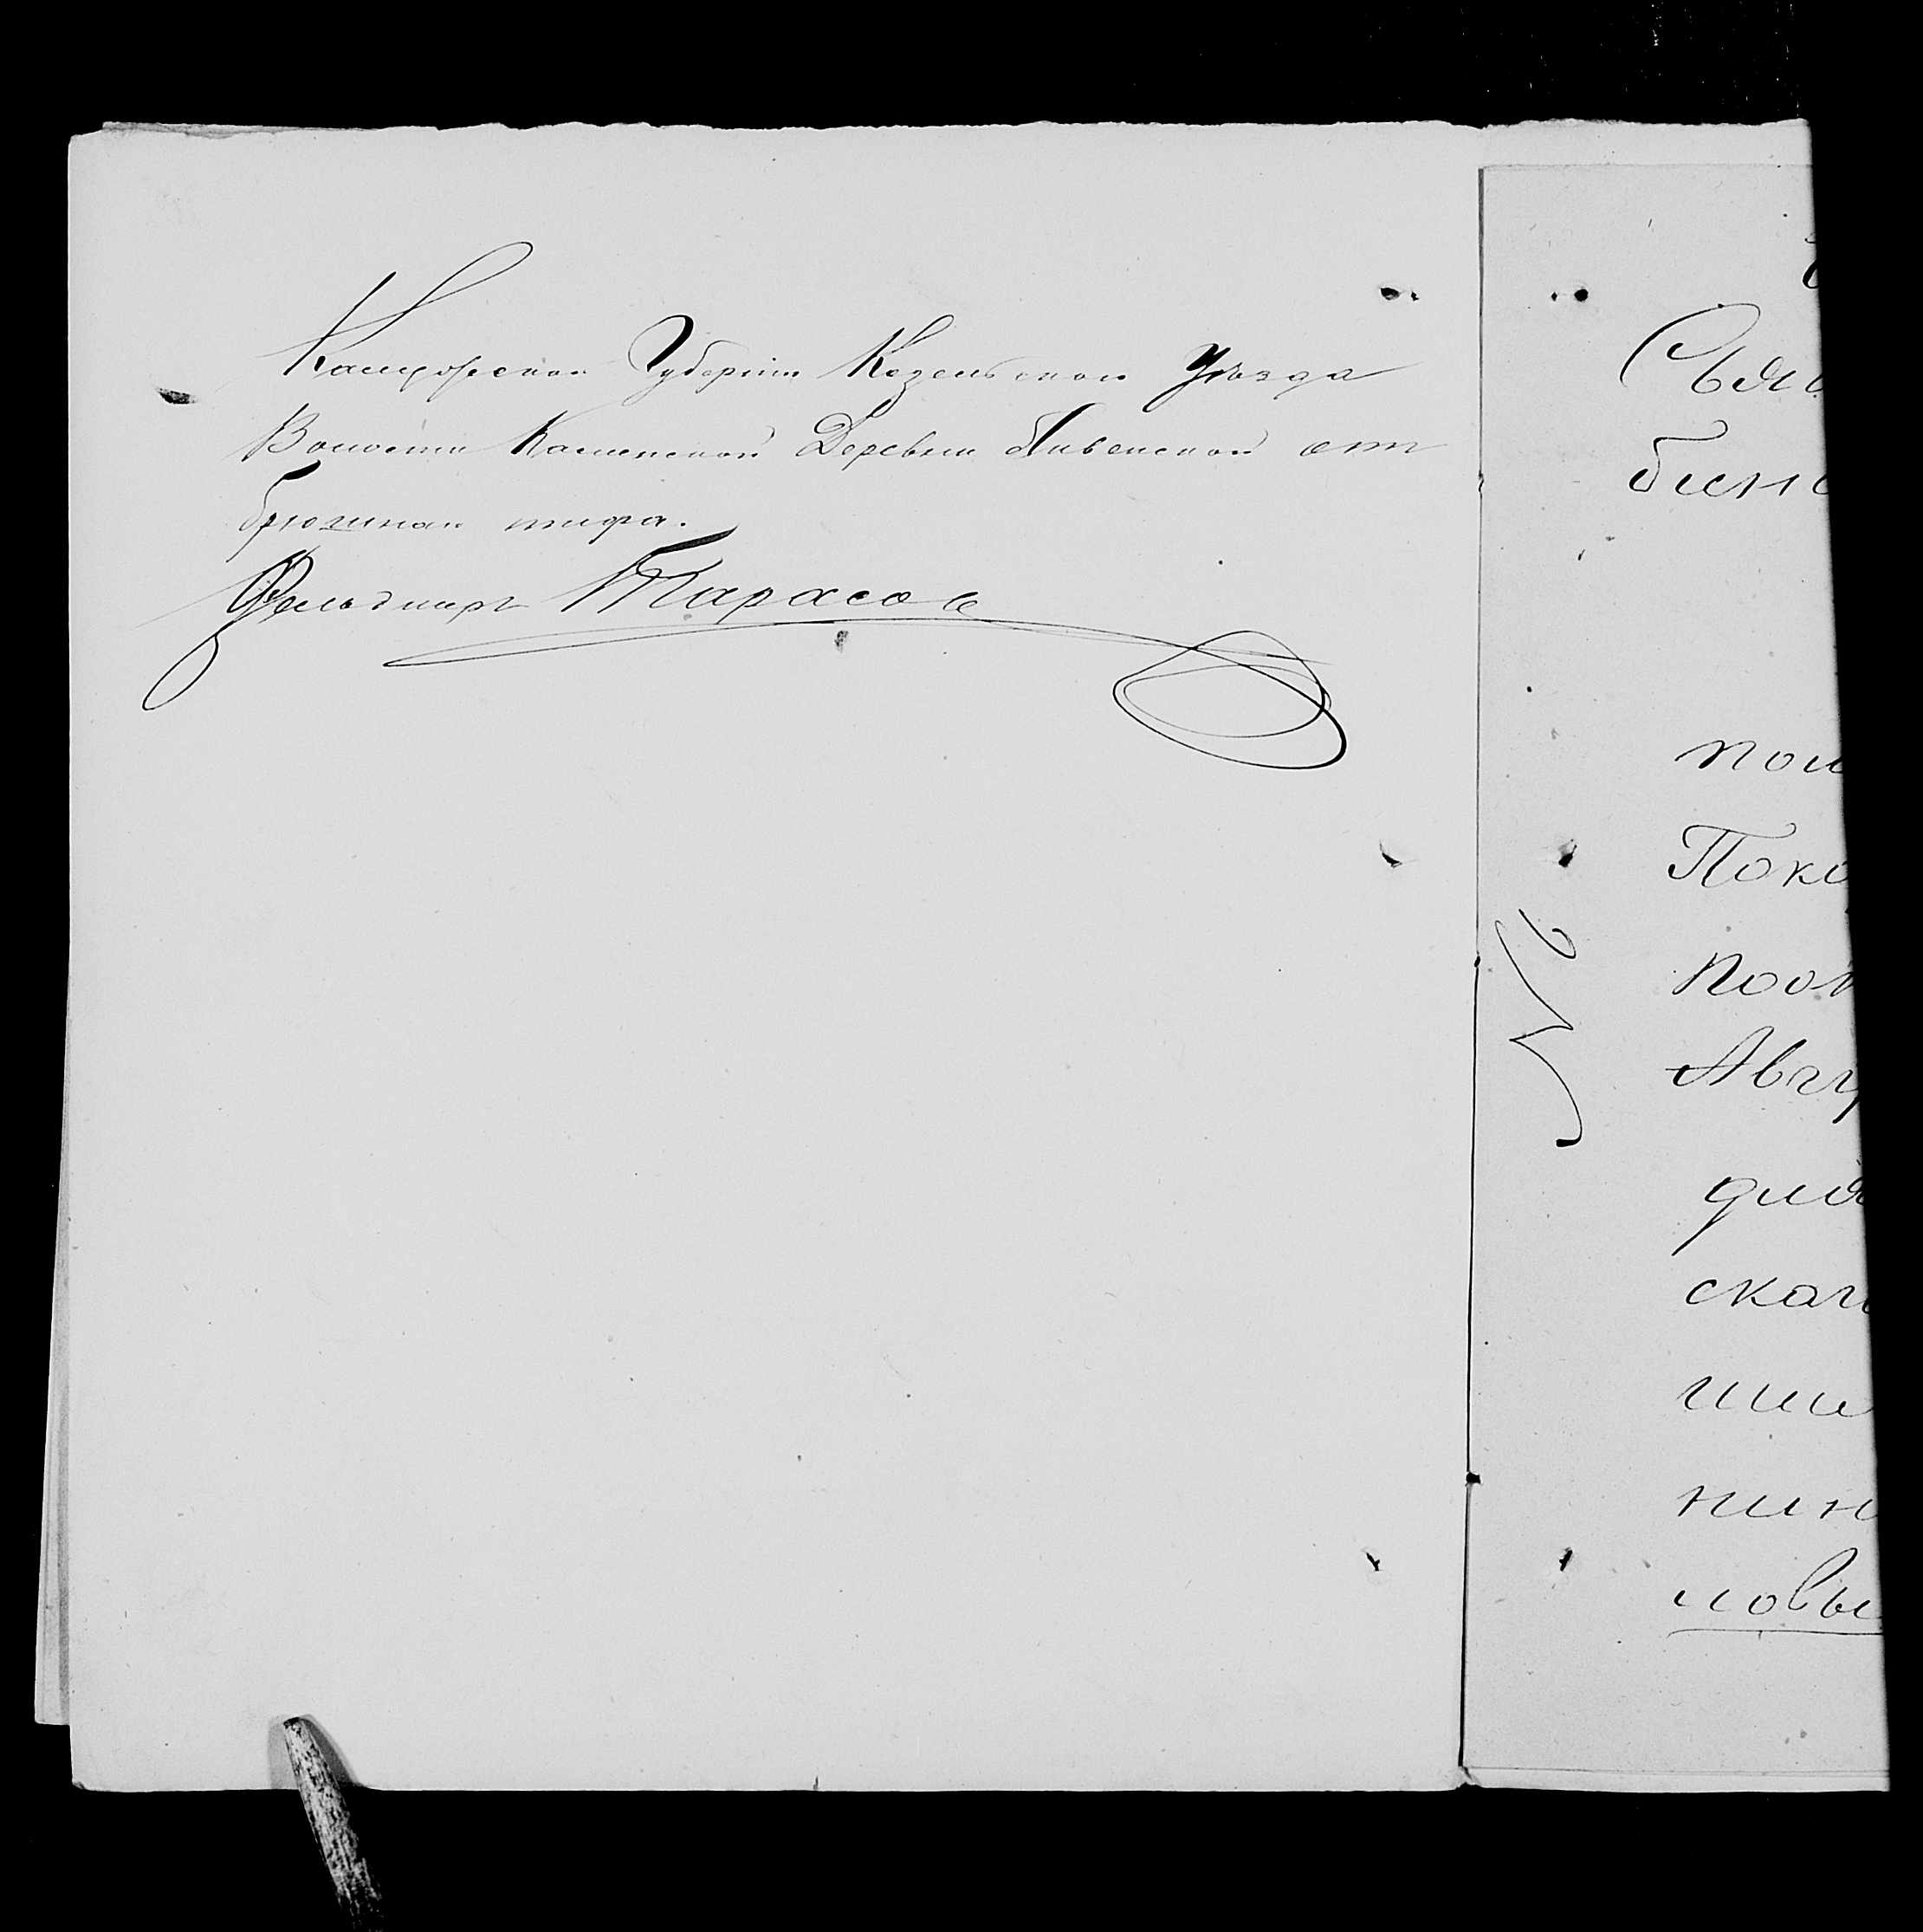 Калужской Губерніи Козельскои Уѣзда
Волости Каменской Деревни Ливенской отъ
брюшнаи тифа.
Фельдшеръ Тарасов
Свя
бин
пол
Поко
посл
Авгу
для
скаг
ши
нин
ловы
№